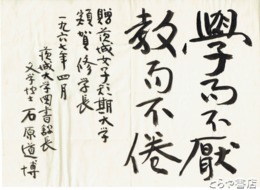 學而不厭
教而不倦
贈茨城女子短期大学
額賀修学長
一九六七年四月
茨城大学図書館長
文学博士 石原道博
とらや書店